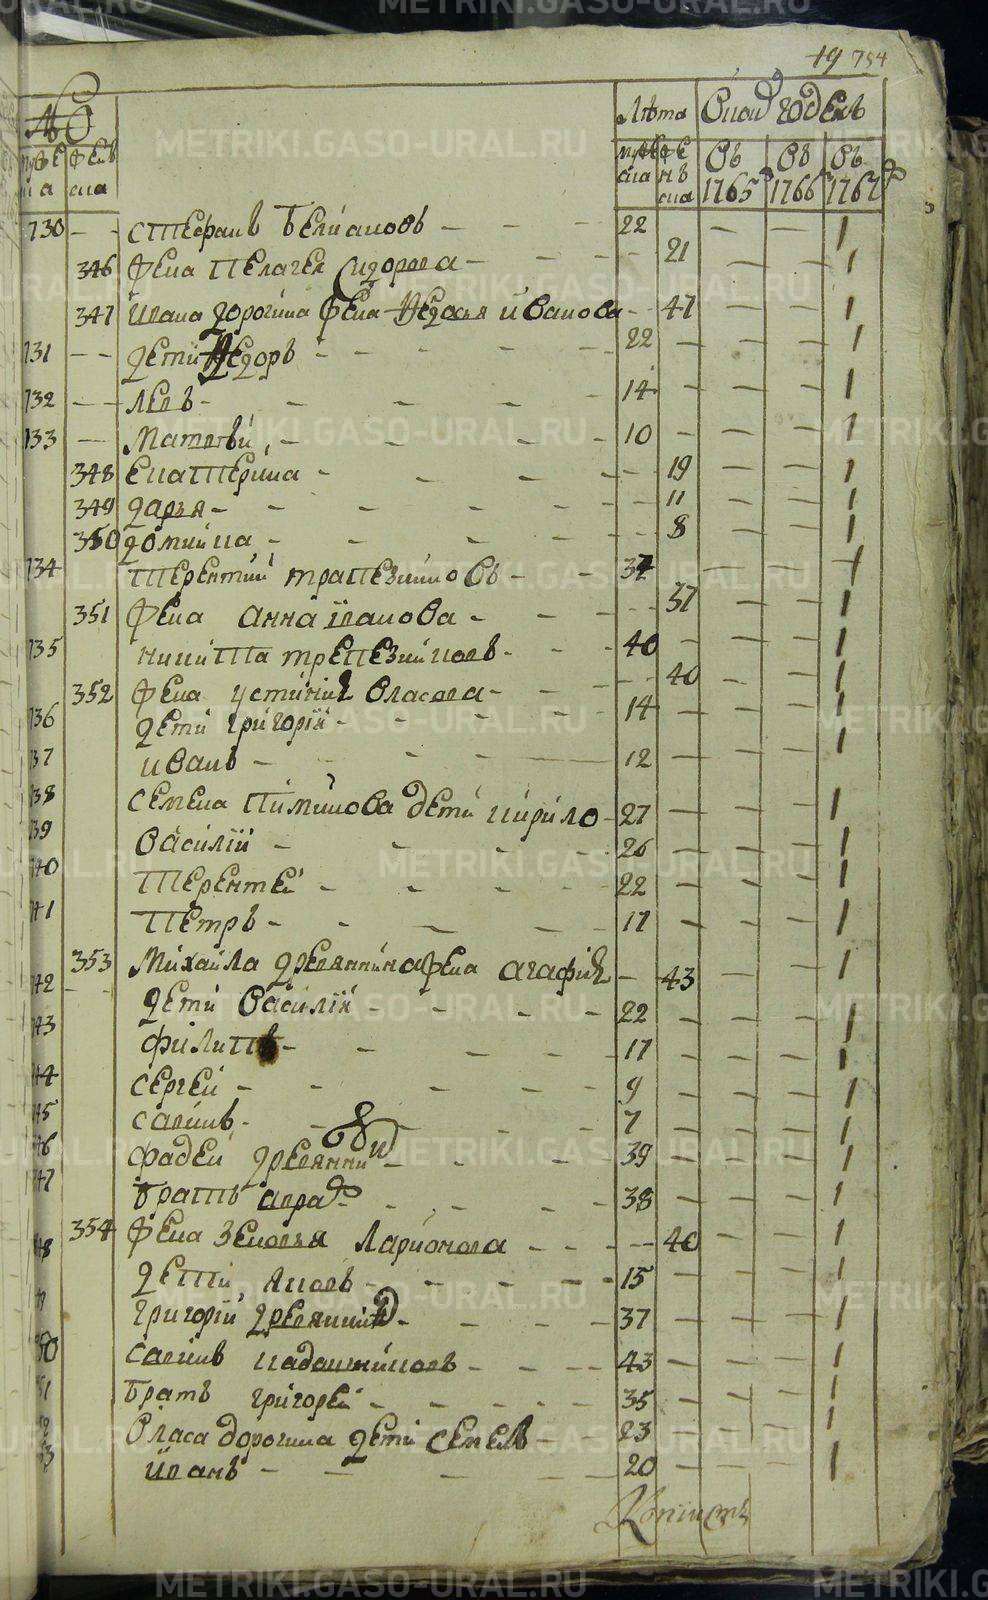 19 754
№
Лѣта Сколко годовъ
муже ска женъ ска
муже ска женъ ска Въ 1765 Въ 1766 Въ 1767
730 — Стефанъ Белиановъ — 22 — — — 1
346 Жена Пелагея Сидорова — 21 — — 1
347 Ивана дорогина жена Федосья иванова — 47 — — 1
731 — дети Федоръ — 22 — — 1
732 — Левъ — 14 — — — 1
733 — Матвѣй — 10 — — — 1
348 Екатерина — 19 — — 1
349 дарья — 11 — — 1
350 домнина — 8 — — 1
734 Терентий трапезниковъ — 37 — — — 1
351 жена анна иванова — 37 — — 1
735 никита трепезниковъ — 40 — — — 1
352 жена устинія власова — 40 — — 1
736 дети григорій — 14 — — — 1
737 иванъ — 12 — — — 1
738 семена пиминова дети кирило — 27 — — — 1
739 василій — 26 — — — 1
740 терентей — 22 — — — 1
741 Петръ — 17 — — — 1
353 михаила древнина жена агафия — 43 — — 1
742 дети василій — 22 — — — 1
743 филипъ — 17 — — — 1
744 сергей — 9 — — — 1
745 савинъ — 7 — — — 1
746 фадей древянкин — 39 — — — 1
747 братъ — 38 — — — 1
354 жена зеновья Ларионова — 40 — — 1
748 дети яковъ — 15 — — — 1
григорій — 37 — — — 1
750 савинъ — 43 — — — 1
751 братъ григорей — 35 — — — 1
752 власа дорогина дети семенъ — 23 — — — 1
753 иванъ — 20 — — — 1
Копиистъ